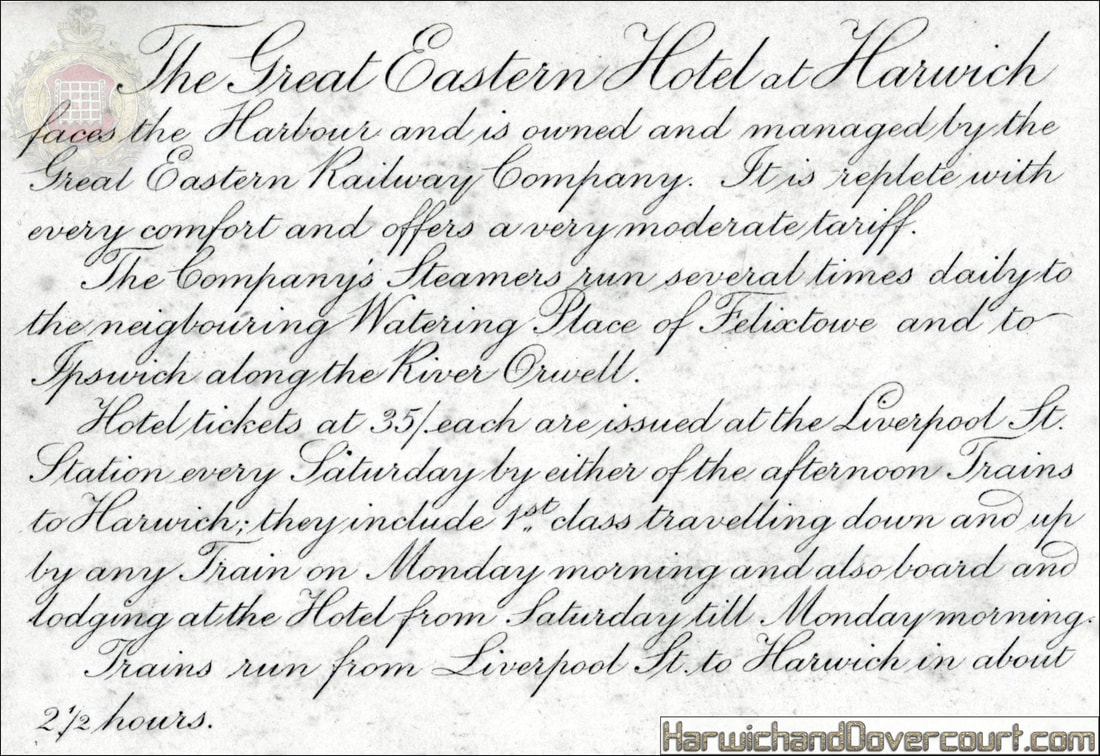 The Great Eastern Hotel at Harwich
faces the Harbour and is owned and managed by the
Great Eastern Railway Company. It is replete with
every comfort and offers a very moderate tariff.
The Company's Steamers run several times daily to
the neigbouring Watering Place of Felixtowe and to
Ipswich along the River Orwell.
Hotel tickets at 35/. each are issued at the Liverpool St.
Station every Saturday by either of the afternoon Trains
to Harwich; they include 1st. class travelling down and up
by any Train on Monday morning and also board and
lodging at the Hotel from Saturday till Monday morning.
Trains run from Liverpool St. to Harwich in about
2 1/2 hours.
HarwichandDovercourt.com